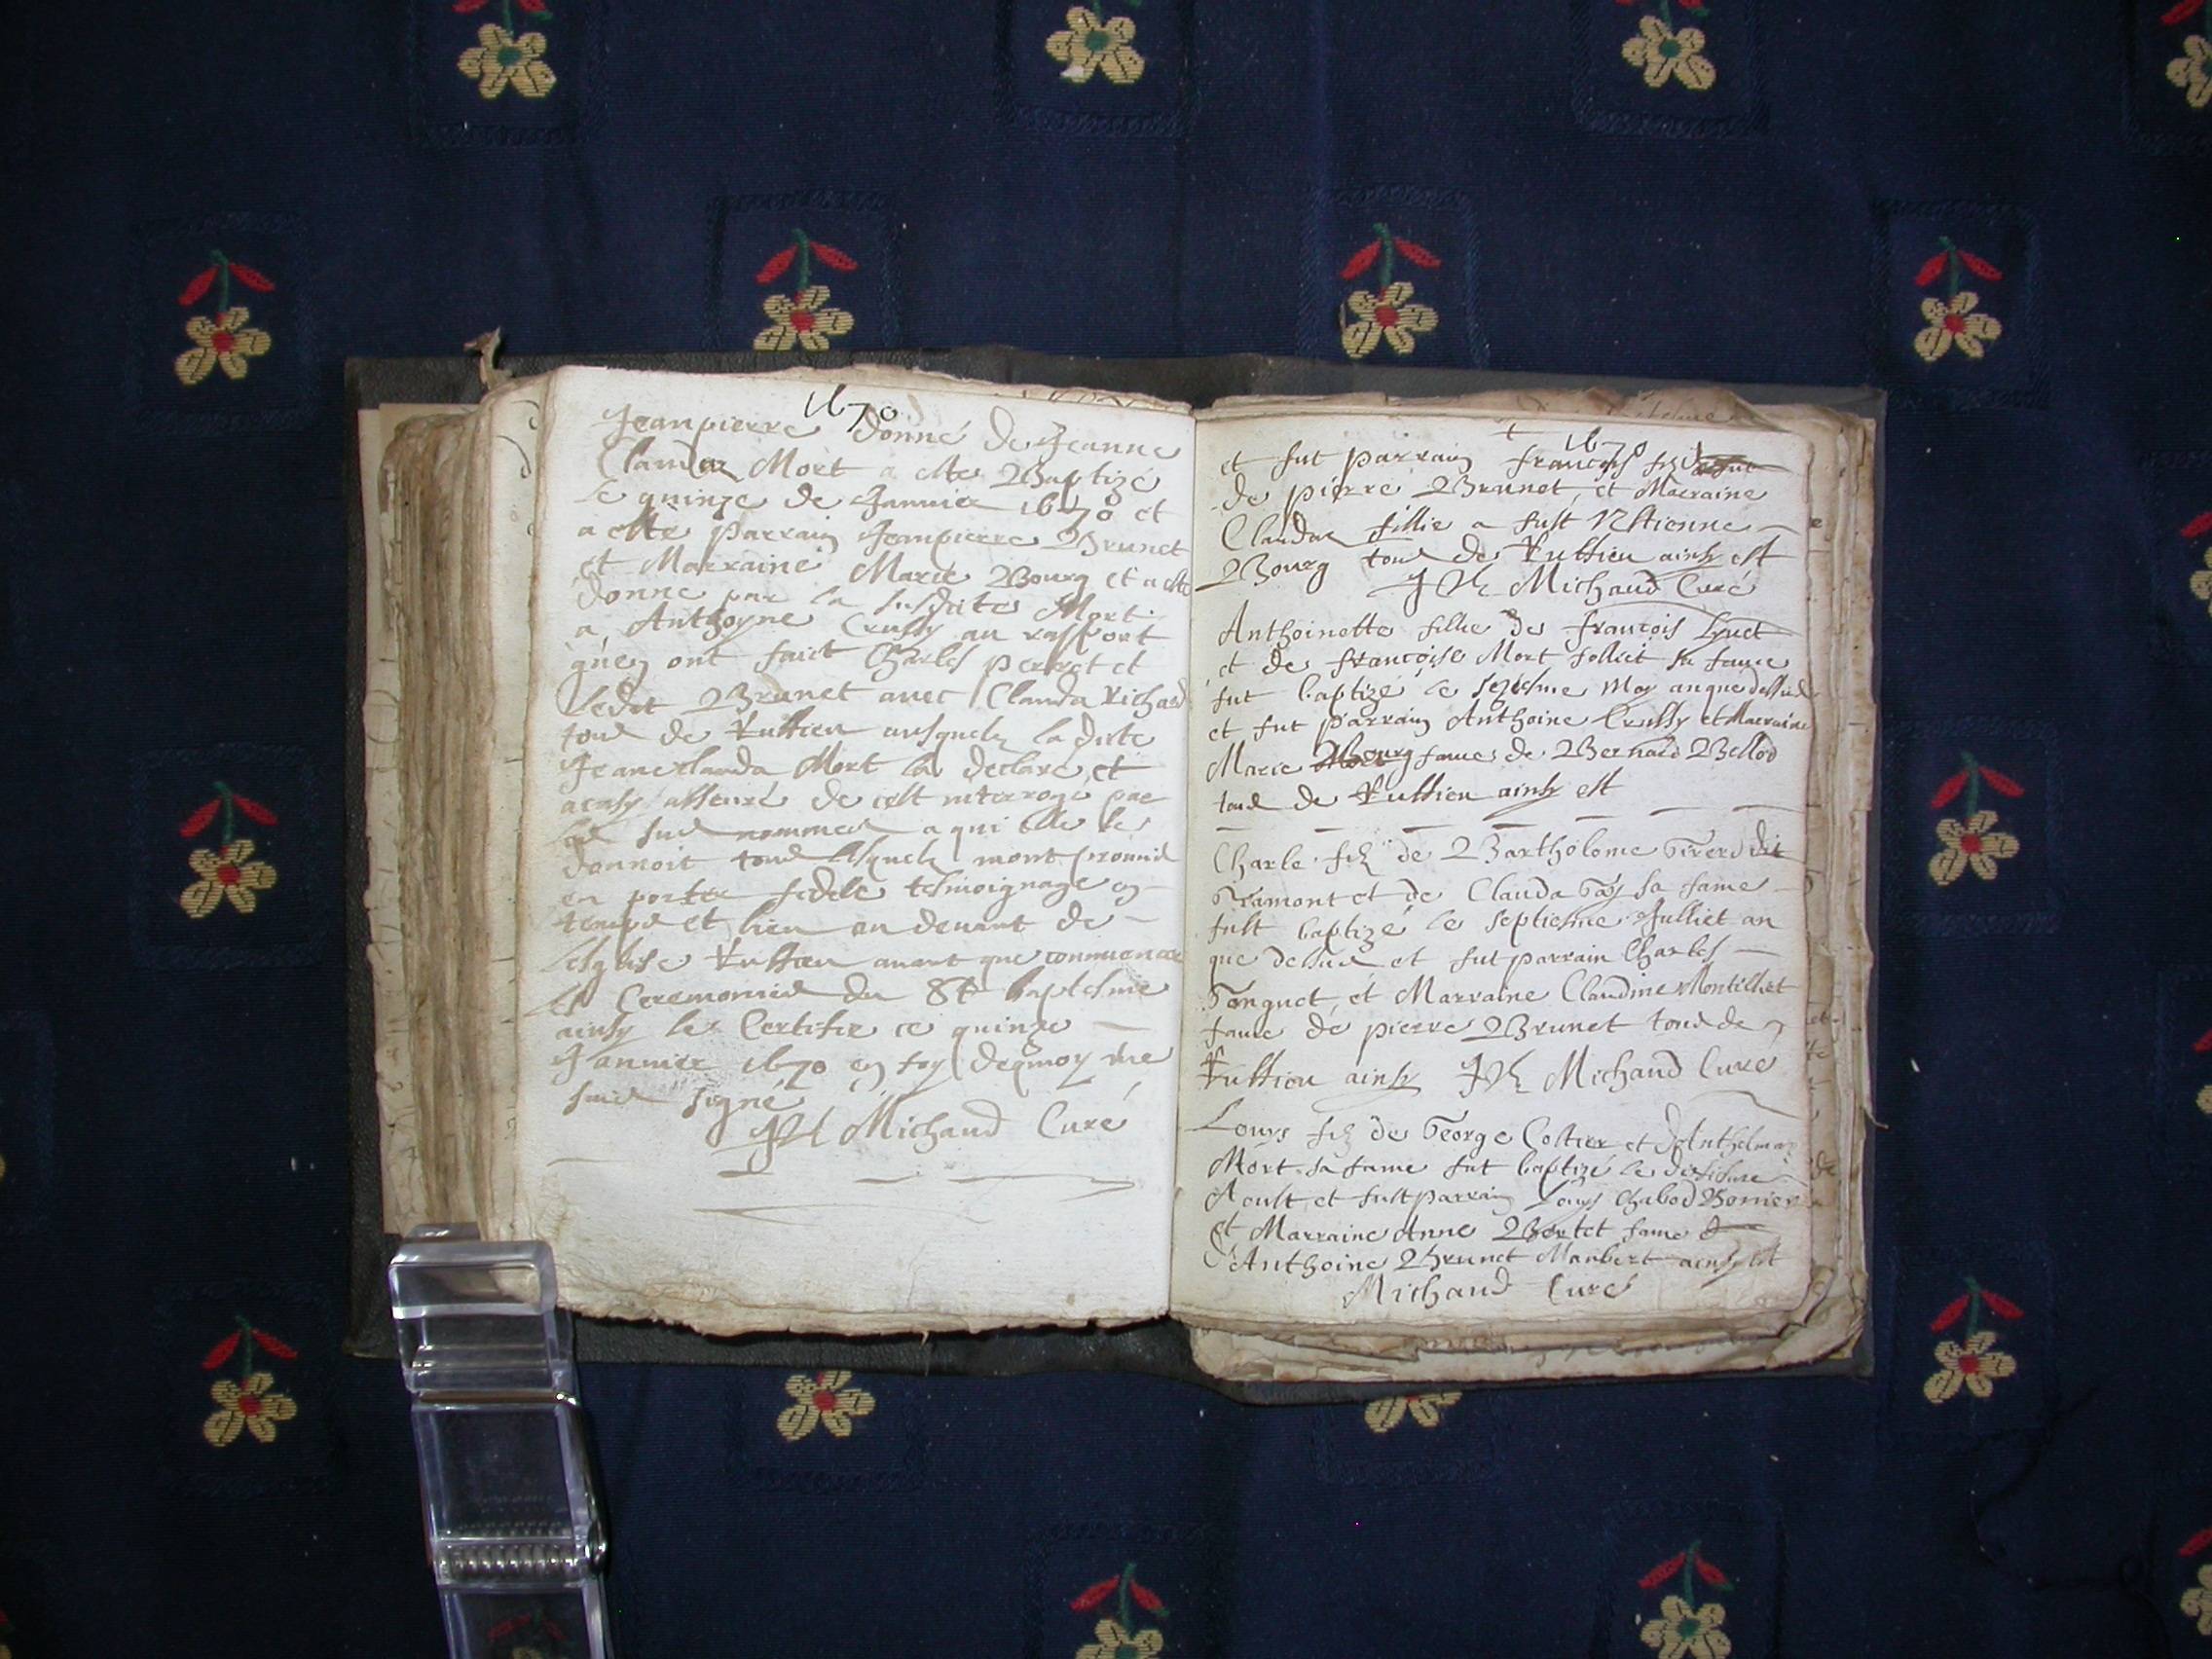 1670
Jeanpierre donné de Jeanne
Clauda Mort a este Baptizé
le quinze de Janvier 1670 et
a este Parrain Jeanpierre Brunet
et Marraine Marie Bourg et a este
donne par la susdite Mort
a Anthoyne Crussy au rapport
quen ont faict Charles perret et
Ledit Brunet avec Clauda Richard
tous de ausquels la dite
Jeaneclauda Mort la declaré et
ainsy asseuré de cest interrogé par
les sus nommes a qui elle le
donnoit tous lesquels mont promis
en porter fidele tesmoignage en
temps et lieu au devant de
lesglise avant que commencer
les Ceremonies du St baptesme
ainsy le Certifie ce quinze
Janvier 1670 en foy dequoy me
suis signé
Michaud Curé
1670
et fut parrain françois fiz
de pierre Brunet, et Marraine
Clauda fillie a fust Estienne
Bourg tous de ainsy est
Michaud Curé
Anthoinette fillie de françois Lyvet
et de françoise Mort folliet sa fame
fut baptizé le May an que dessus
et fut parrain Anthoine Crussy et Marraine
Marie Bourg fame de Bernard Bellod
tous de ainsy est
Charle fiz de Bartholome dit
et de Clauda sa fame
fust baptizé le septiesme Julliet an
que dessus et fut parrain Charles
et Marraine Claudine Montilliet
fame de pierre Brunet tous de
ainsy Michaud Curé
Louys fiz de George Coltier et dAnthelma
Mort sa fame fut baptizé le
Aoust et fust parrain Louys Chabod
et Marraine Anne Bertet fame
d'Anthoine Brunet Manbert ainsy est
Michaud Curé